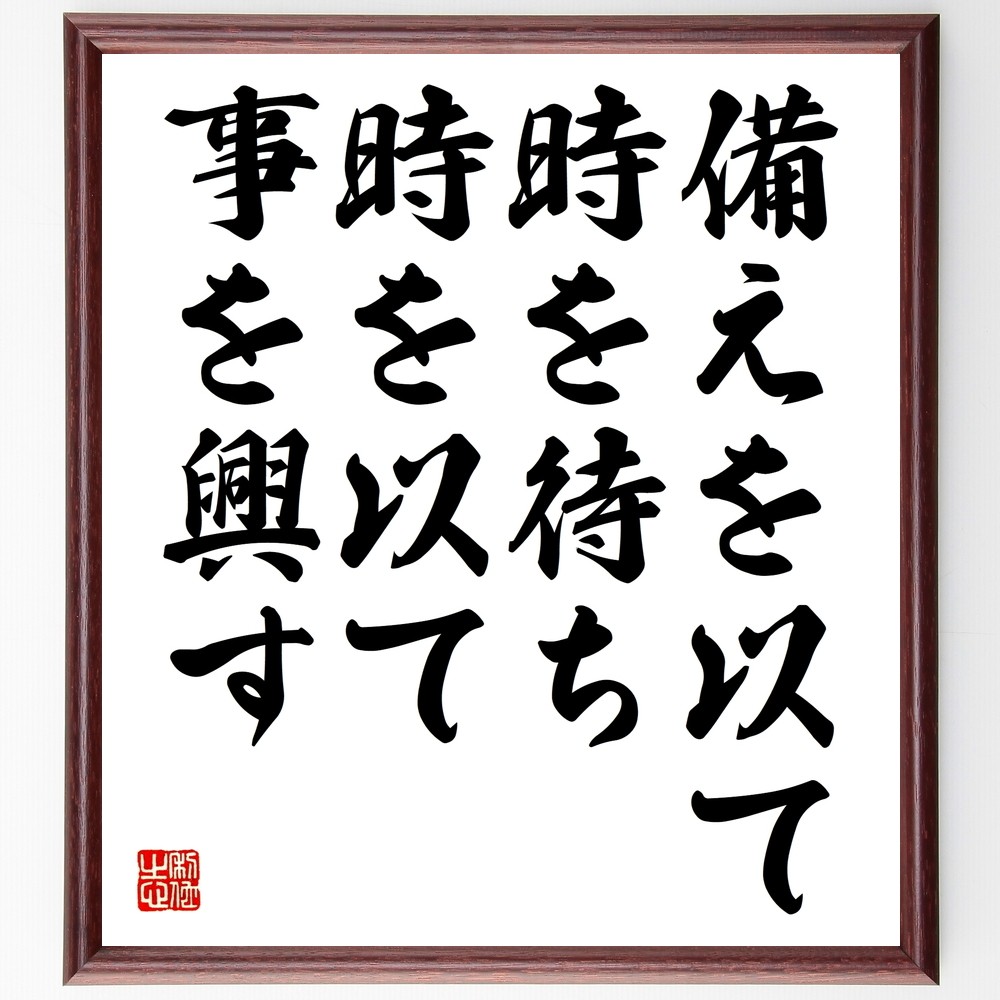 備えを以て
時を待ち
時を以て
事を興す